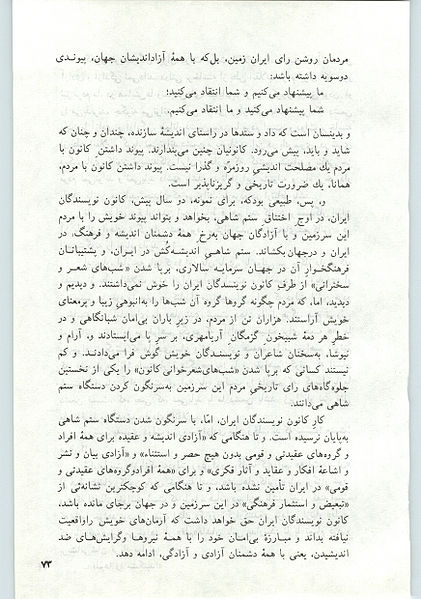 مردمان روشن رای ایران زمین، بل‌که با همهٔ آزاداندیشان جهان، پیوندی
دوسویه داشته باشد:
ما پیشنهاد می‌کنیم و شما انتقاد می‌کنید؛
شما پیشنهاد می‌کنید و ما انتقاد می‌کنیم.
و بدینسان است که داد و ستدها در راستای اندیشهٔ سازنده، چندان و چنان که
شاید و باید، پیش می‌رود. کانونیان چنین می‌پندارند. پیوند داشتن کانون با
مردم یك مصلحت اندیشیِ روزمرّه و گذرا نیست. پیوند داشتن کانون با مردم،
همانا، یك ضرورت تاریخی و گریزناپذیر است.
و، پس، طبیعی بودکه، برای نمونه، دو سال پیش، کانون نویسندگان
ایران، در اوج اختناقِ ستم شاهی، بخواهد و بتواند پیوند خویش را با مردم
این سرزمین و با آزادگان جهان به‌رخ همهٔ دشمنان اندیشه و فرهنگ، در
ایران و درجهان بکشاند. ستم شاهی اندیشه‌کُش در ایران، و پشتیبانان
فرهنگخوار آن در جهان سرمایه سالاری، برپا شدن «شب‌های شعر و
سخنرانی» از طرف کانون نویسندگان ایران را خوش نمی‌داشتند. و دیدیم و
دیدید، اما، که مردم چگونه گروها گروه آن شب‌ها را به‌انبوهیِ زیبا و پرمعنای
خویش آراستند. هزاران تن از مردم، در زیر باران بی‌امان شبانگاهی و در
خطرِ هر دمهٔ شبیخونِ گزمگان آریامهری، بر سرِ پا می‌ایستادند و، آرام و
نیوشا، به‌سخنان شاعران و نویسندگان خویش گوش فرا می‌دادند. و کم
نیستند کسانی که برپا شدن «شب‌های‌شعرخوانی کانون» را یکی از نخستین
جلوه‌گاه‌های رای تاریخیِ مردم این سرزمین به‌سرنگون کردن دستگاه ستم
شاهی می‌دانند.
کارِ کانون نویسندگان ایران، امّا، با سرنگون شدن دستگاه ستم شاهی
به‌پایان نرسیده است. و تا هنگامی که «آزادی اندیشه و عقیده برای همهٔ افراد
و گروه‌های عقیدتی و قومی بدون هیچ حصر و استثناء» و «آزادی بیان و نشر
و اشاعهٔ افکار و عقاید و آثار فکری» و برای «همهٔ افرادوگروه‌های عقیدتی و
قومی» در ایران تأمین نشده باشد، و تا هنگامی که کوچکترین نشانه‌ئی از
«تبعیض و استثمار فرهنگی» در این سرزمین و در جهان برجای مانده باشد،
کانون نویسندگان ایران حق خواهد داشت که آرمان‌های خویش راواقعیت
نیافته بداند و مبارزهٔ بی‌امان خود را با همهٔ نیروها وگرایش‌های ضد
اندیشیدن، یعنی با همهٔ دشمنان آزادی و آزادگی، ادامه دهد.
۷۳